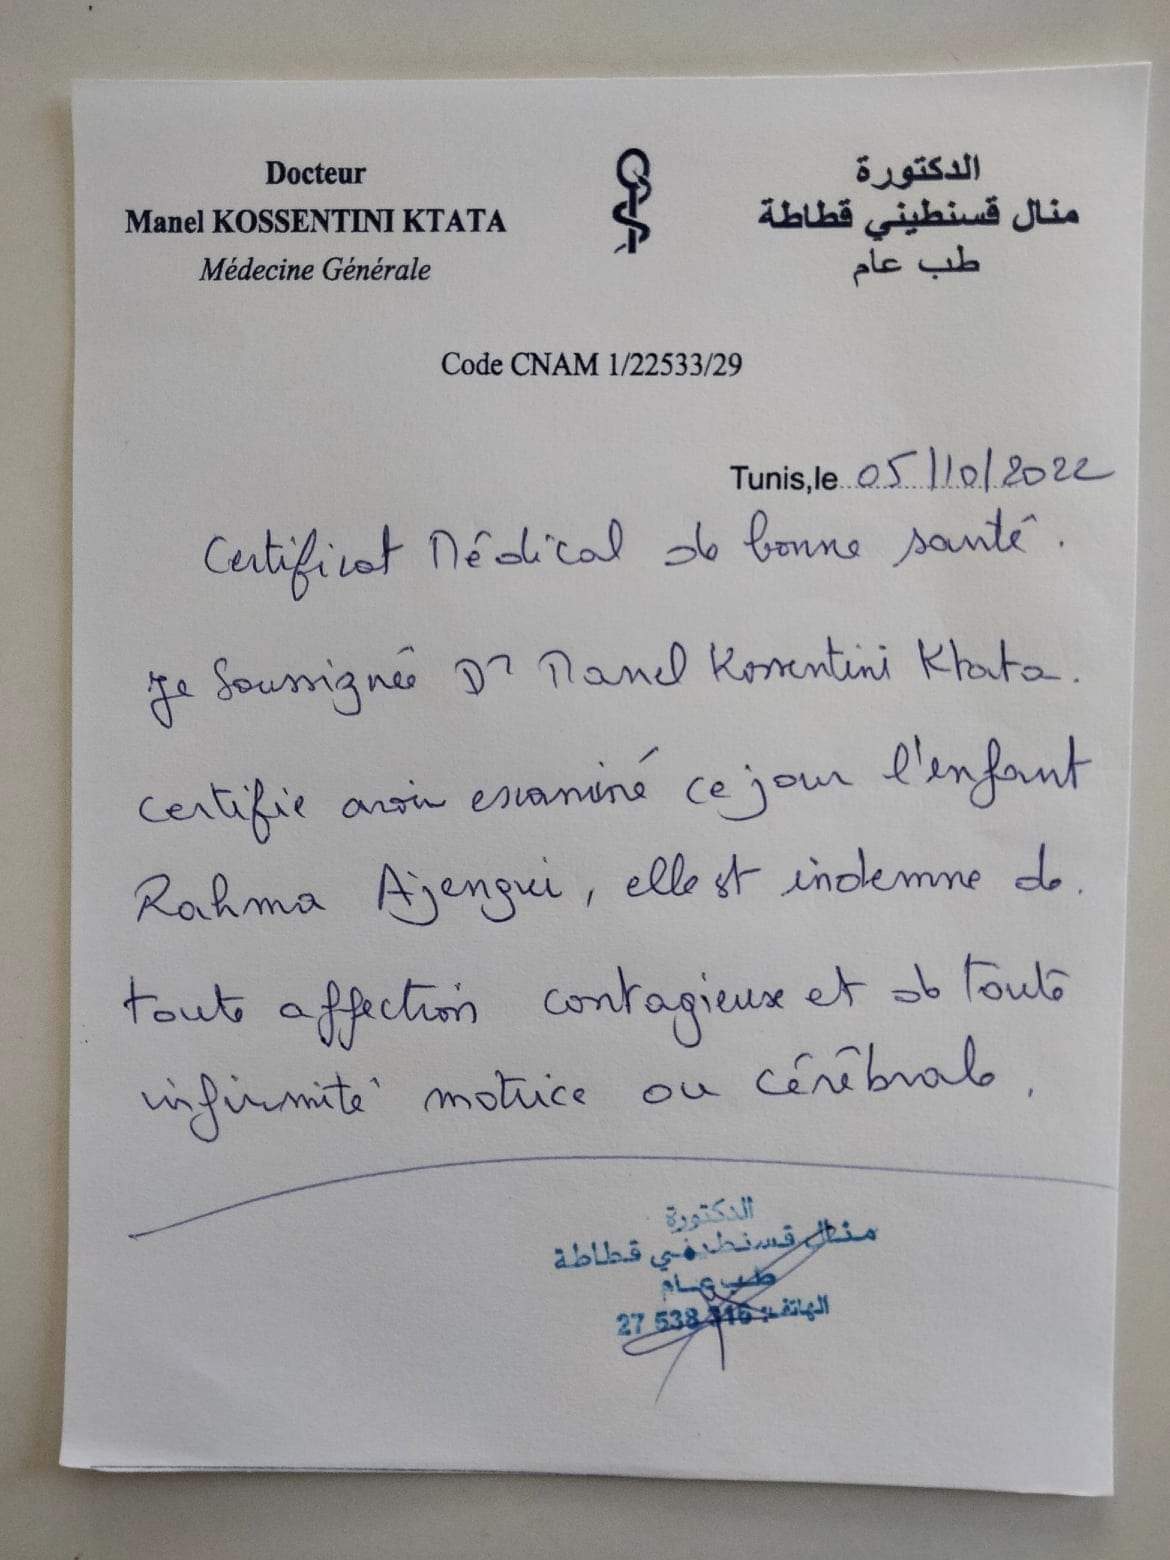 Docteur
Manel KOSSENTINI KTATA
Médecine Générale
الدكتورة
منال قسنطيني قطاطة
طب عام
Code CNAM 1/22533/29
Tunis,le 05/10/2022
Certificat Médical de bonne santé.
Je Soussignée Dr Manel Kossentini Ktata.
certifie avoir examiné ce jour l'enfant
Rahma Ajengui, elle est indemne de
toute affection contagieuse et de toute
infirmité motrice ou cérébrale.
الدكتورة
منال قسنطيني قطاطة
طب عام
الهاتف: 27 538